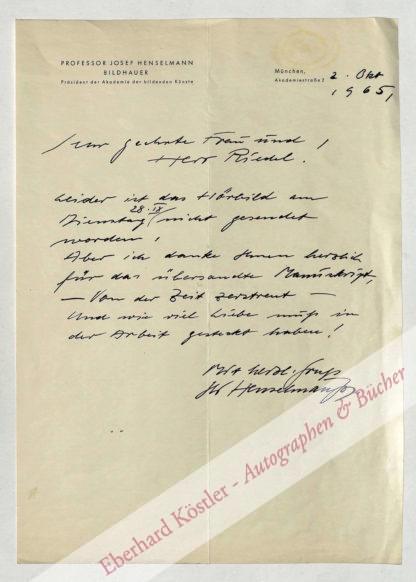 PROFESSOR JOSEF HENSELMANN
BILDHAUER
Präsident der Akademie der bildenden Künste
München, 2. Okt
Akademiestraße 2 1965,
Sehr geehrte Frau und
Herr Riedel!
Leider ist das Hörbild am
Dienstag 28. IX nicht gesendet
worden!
Aber ich danke Ihnen herzlich
für das übersandte Manuskript,
– Von der Zeit zerstreut –
Und wie viel Liebe muß in
der Arbeit gesteckt haben!
Mit herzl. Gruß
Ihr Henselmann
Eberhard Köstler - Autographen & Bücher